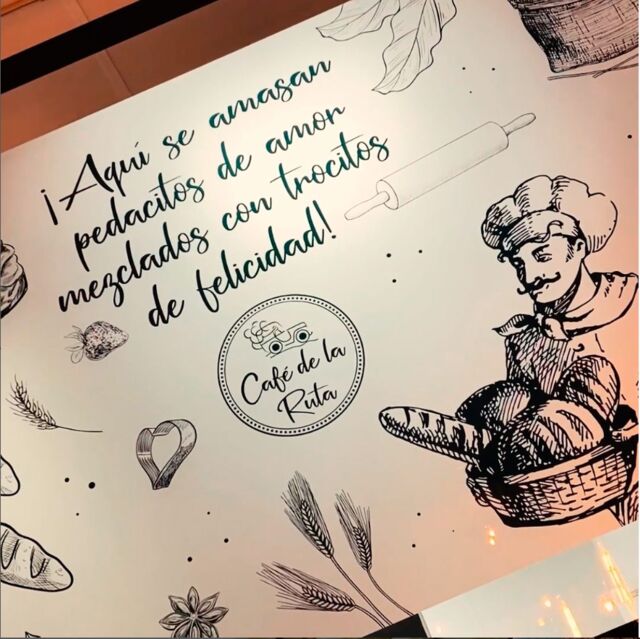 ¡Aquí se amasan
pedacitos de amor
mezclados con trocitos
de felicidad!
Café de la
Ruta